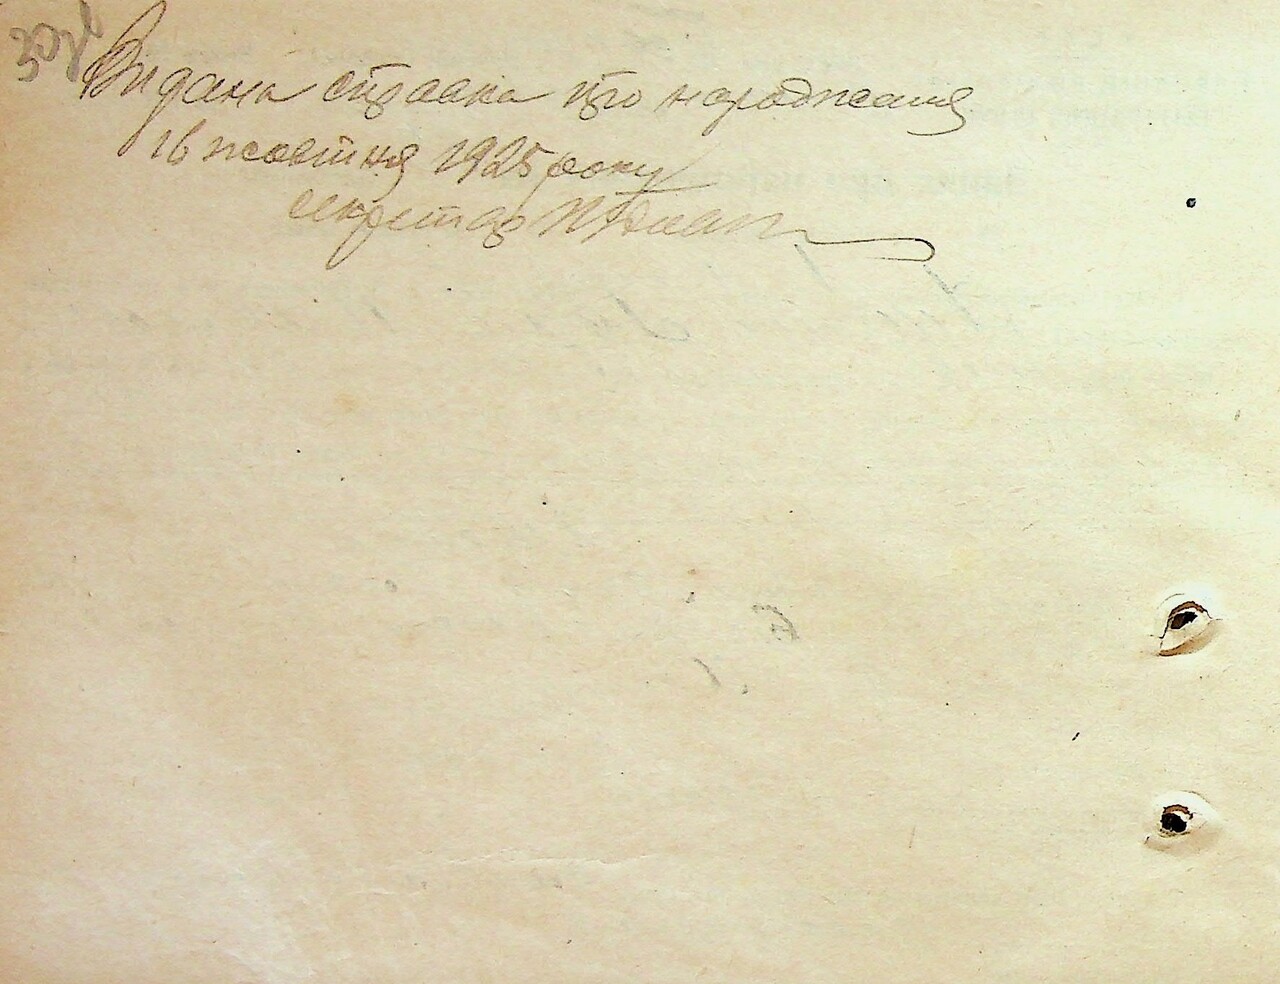 30
Видана справка про народження
16 жовтня 1925 року
секретар